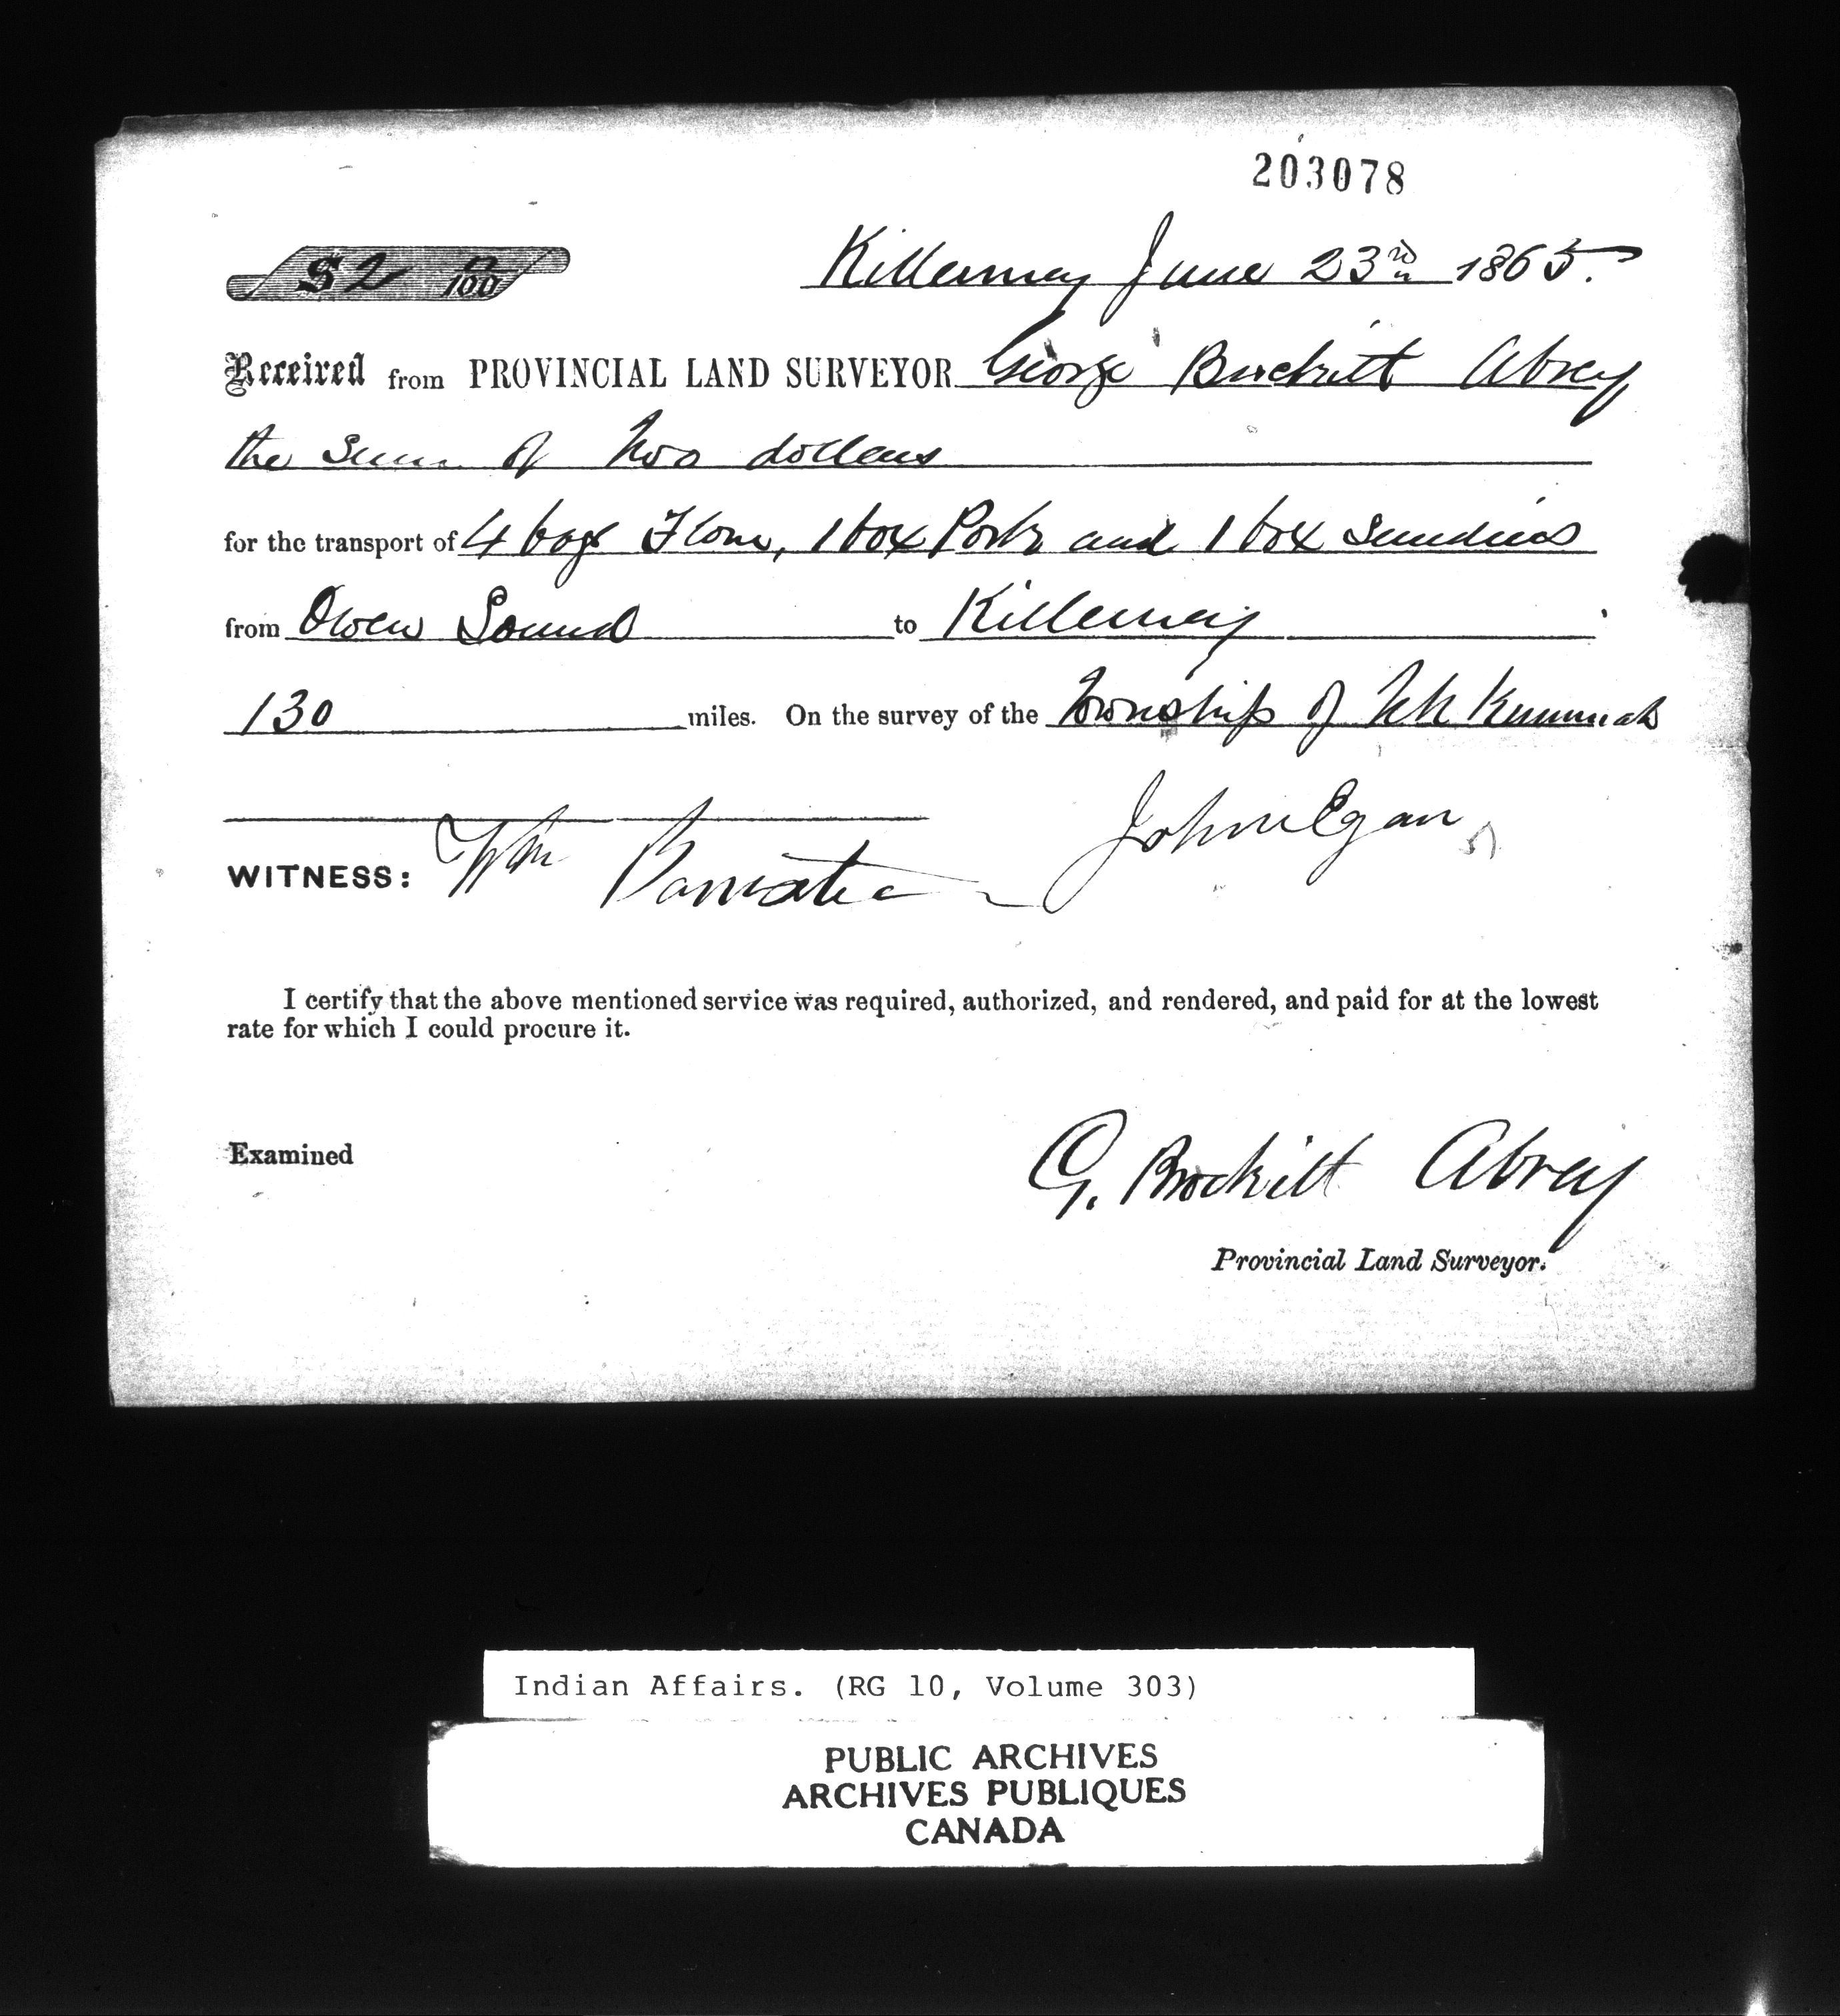 203078
$2 00/100
Killarney June 23rd 1865.
Received from PROVINCIAL LAND SURVEYOR George Brockitt Abrey
the sum of two dollars
for the transport of 4 bags Flour, 1 box Pork and 1 box Sundries
from Owen Sound to Killarney
130 miles. On the survey of the Township of Teh Kummah
John Egan
WITNESS: Wm
I certify that the above mentioned service was required, authorized, and rendered, and paid for at the lowest
rate for which I could procure it.
Examined
G. Brockitt Abrey
Provincial Land Surveyor.
Indian Affairs. (RG 10, Volume 303)
PUBLIC ARCHIVES
ARCHIVES PUBLIQUES
CANADA